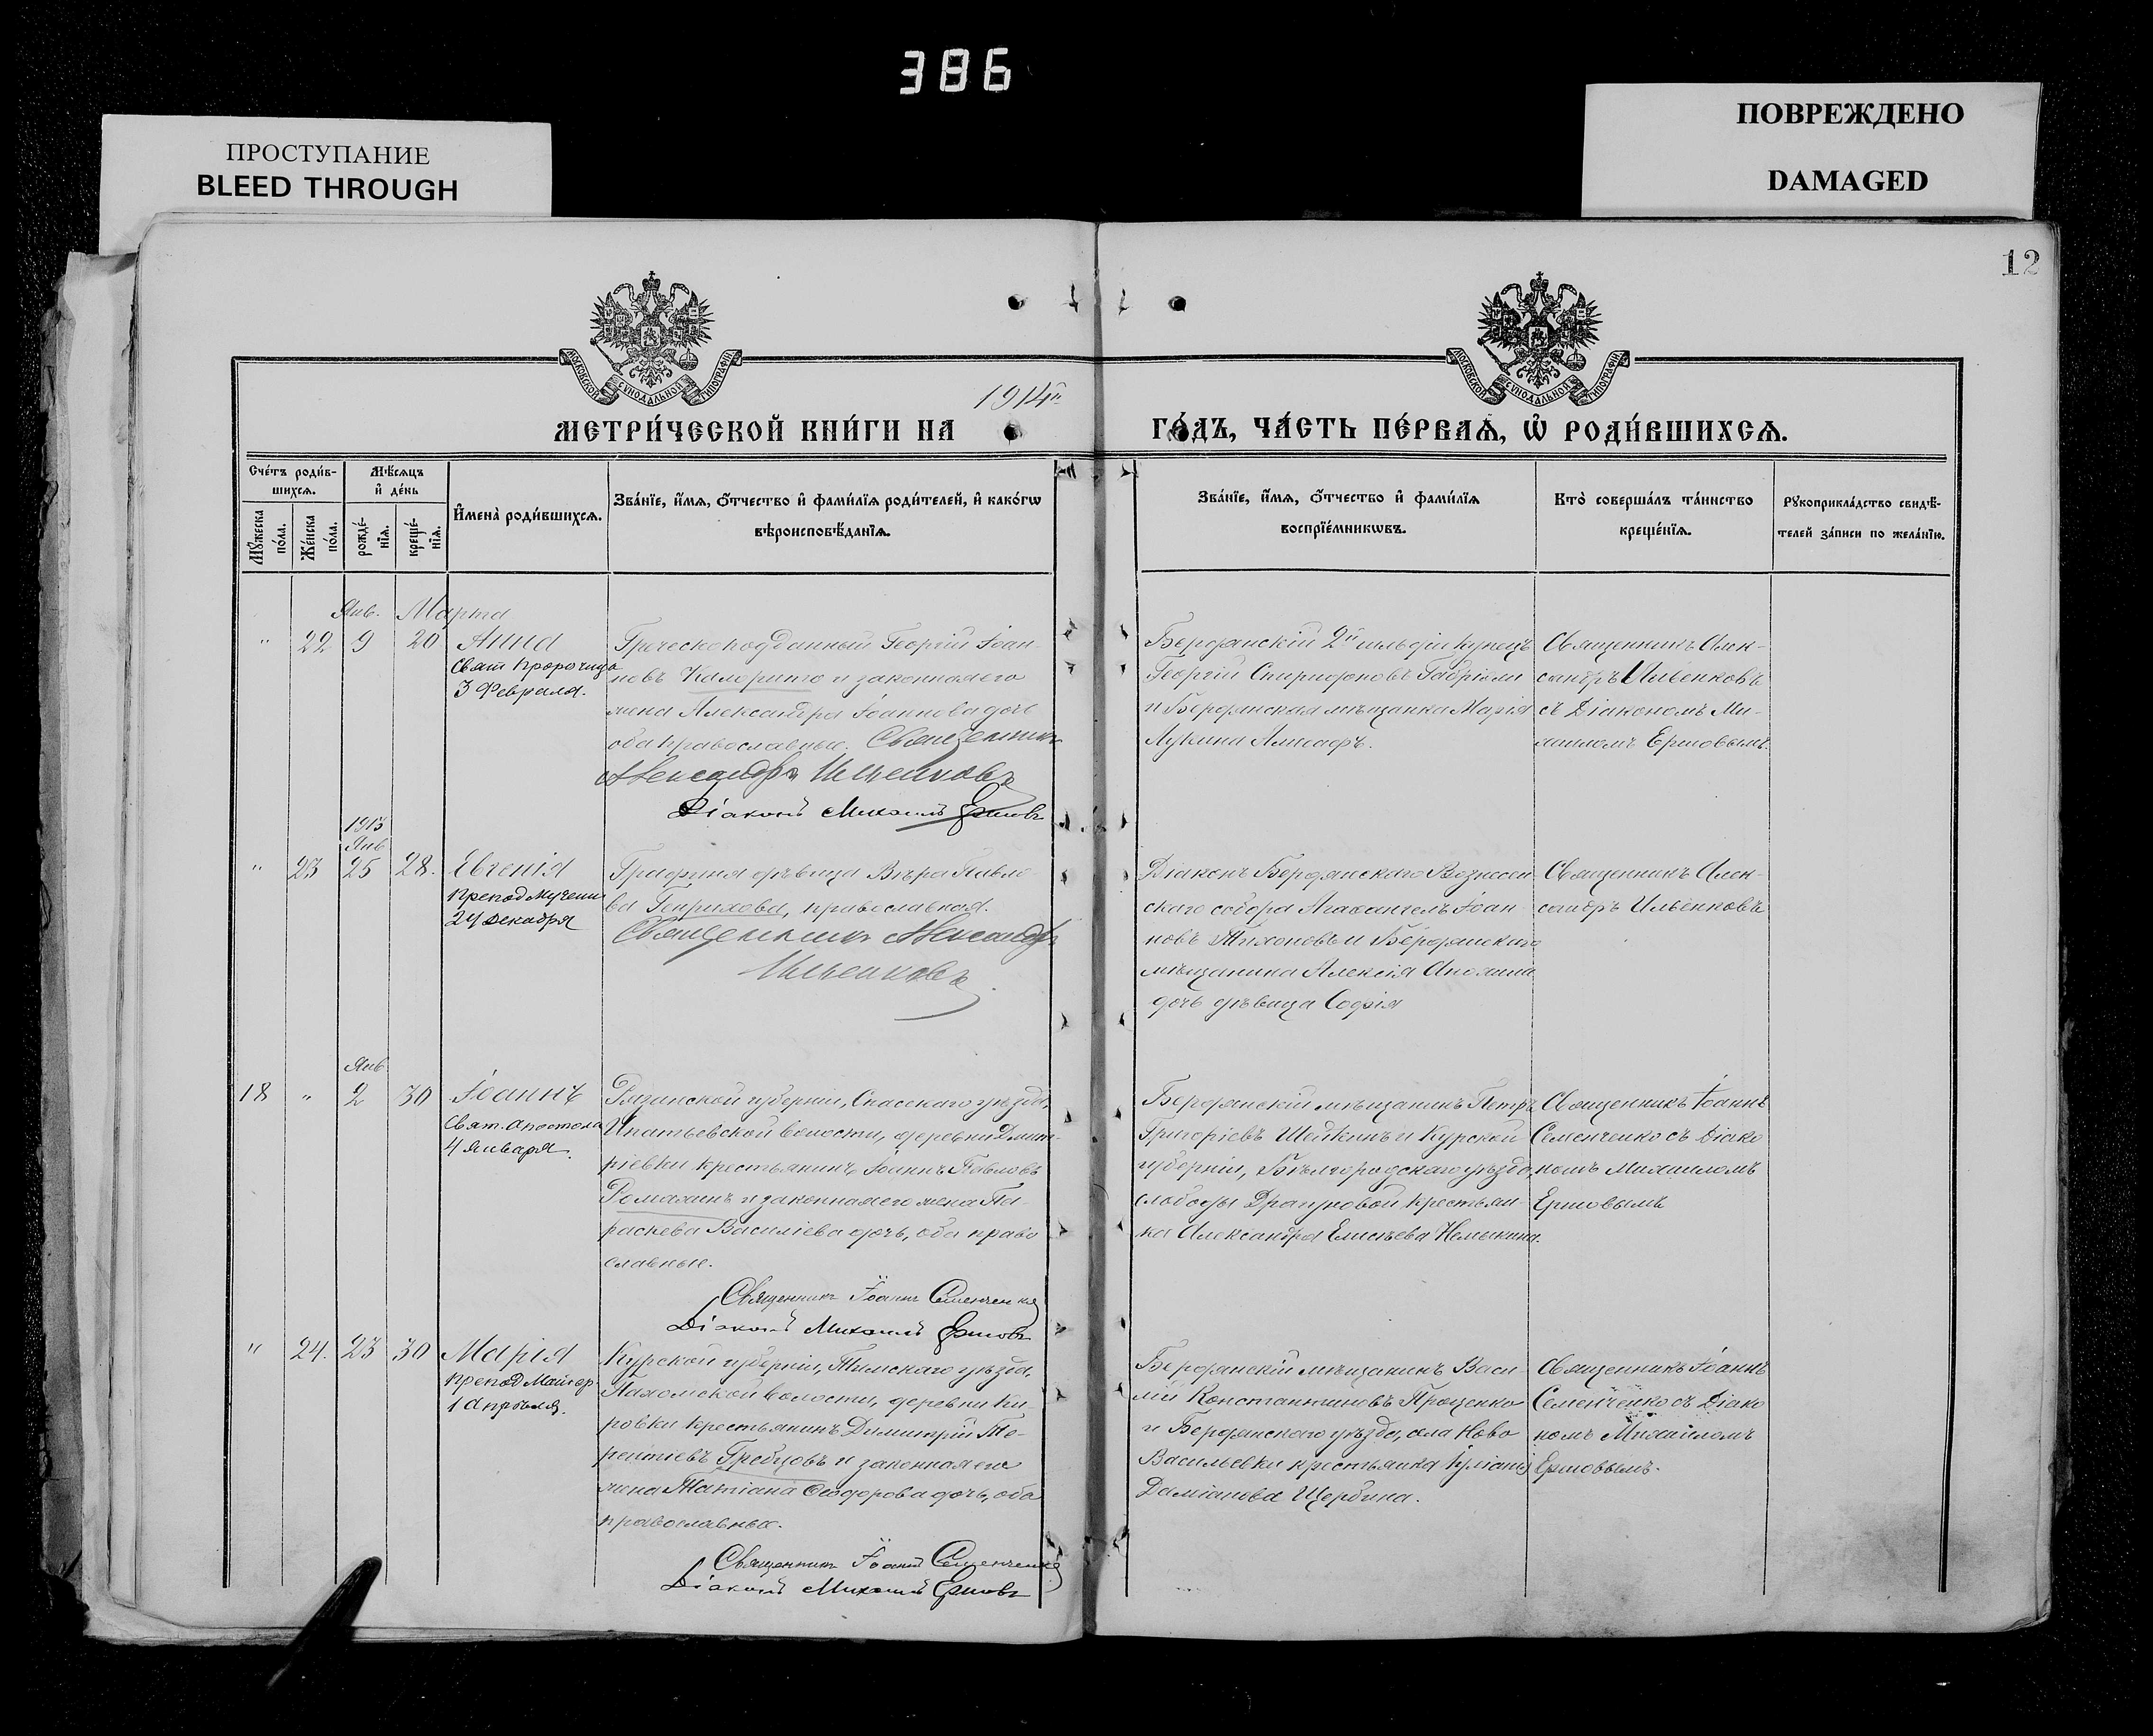 386
ПРОСТУПАНИЕ
BLEED THROUGH
ПОВРЕЖДЕНО
DAMAGED
12
МОСКОВСКОЙ СѴНОДАЛЬНОЙ ТИПОГРАФІИ
МОСКОВСКОЙ СѴНОДАЛЬНОЙ ТИПОГРАФІИ
МЕТРИ́ЧЕСКОЙ КНИ́ГИ НА 1914й ГО́ДЪ, ЧА́СТЬ ПЕ́РВАѦ, Ѡ҆ РОДИ́ВШИХСѦ.
Сче́тъ роди́в-
шихсѧ.
Мꙋ́жеска по́ла.
Же́нска по́ла.
Мѣ́сѧцъ
и҆ де́нь
рожде́-
нїѧ.
креще́-
нїѧ.
И҆мена̀ роди́вшихсѧ.
Зва́нїе, и҆́мѧ, ѻ҆́тчество и҆ фами́лїѧ роди́телей, и҆ како́гѡ
вѣроисповѣ́данїѧ.
Зва́нїе, и҆́мѧ, ѻ҆́тчество и҆ фами́лїѧ
воспрїе́мникѡвъ.
Кто̀ соверша́лъ та́инство
креще́нїѧ.
Рꙋкоприкла́дство свидѣ́-
телей за́писи по жела́нїю.
Янв. Марта
" 22 9 20 Анна
Свят Пророчица
3 Февраля.
Греческоподданный Георгій Іоан-
новъ и законная его
жена Александра Іоаннова дочь
оба православные. Священникъ
Александръ Ильенковъ
Діаконъ Михаилъ Ершовъ
Бердянскій 2й гильдіи купецъ
Георгій Спиридоновъ
и Бердянская мѣщанка Марія
Лукина
Священникъ Алек-
сандръ Ильенковъ
съ Діакономъ Ми-
хаиломъ Ершовымъ.
1913
Янв
" 23 25 28. Евгенія
Препод Мучени
24 декабря
дѣвица Вѣра Павло-
ва Генрихова, православная.
Священникъ Александръ
Ильенковъ
Діаконъ Бердянскаго Вознесен
скаго собора Агаѳангелъ Іоан-
новъ Тихоновъ и Бердянскаго
мѣщанина Алексія
дочь дѣвица Софія
Священникъ Алек-
сандръ Ильенковъ
Янв
18 " 2 30 Іоаннъ
Свят. Апостола
4 Января.
Рязанской губерніи, Спасскаго уѣзда,
Ипатьевской волости, деревни Дмит-
ріевки крестьянинъ Іоаннъ Павловъ
Ромахинъ и законная его жена Па-
раскева Василіева дочь, оба право
славные.
Священникъ Іоаннъ Семенченко
Діаконъ Михаилъ Ершовъ
Бердянскій мѣщанинъ Петръ
Григоріевъ Шейкинъ и Курской
губерніи, Бѣлгородскаго уѣзда,
слободы крестьян-
ка Александра Елисѣева
Священникъ Іоаннъ
Семенченко съ Діако
номъ Михаиломъ
Ершовымъ
" 24. 23 30 Марія
Препод
1 Апрѣля.
Курской губерніи, Тимскаго уѣзда,
волости, деревни Ки-
ровки крестьянинъ Димитрій Те-
рентіевъ Гребцовъ и законная его
жена Татіана Ѳеодорова дочь, оба
православные.
Священникъ Іоаннъ Семенченко
Діаконъ Михаилъ Ершовъ
Бердянскій мѣщанинъ Васи-
лій Константиновъ Проценко
и Бердянскаго уѣзда, села Ново
Васильевки крестьянка Іуліанія
Даміанова Щербина.
Священникъ Іоаннъ
Семенченко съ Діако
номъ Михаиломъ
Ершовымъ.